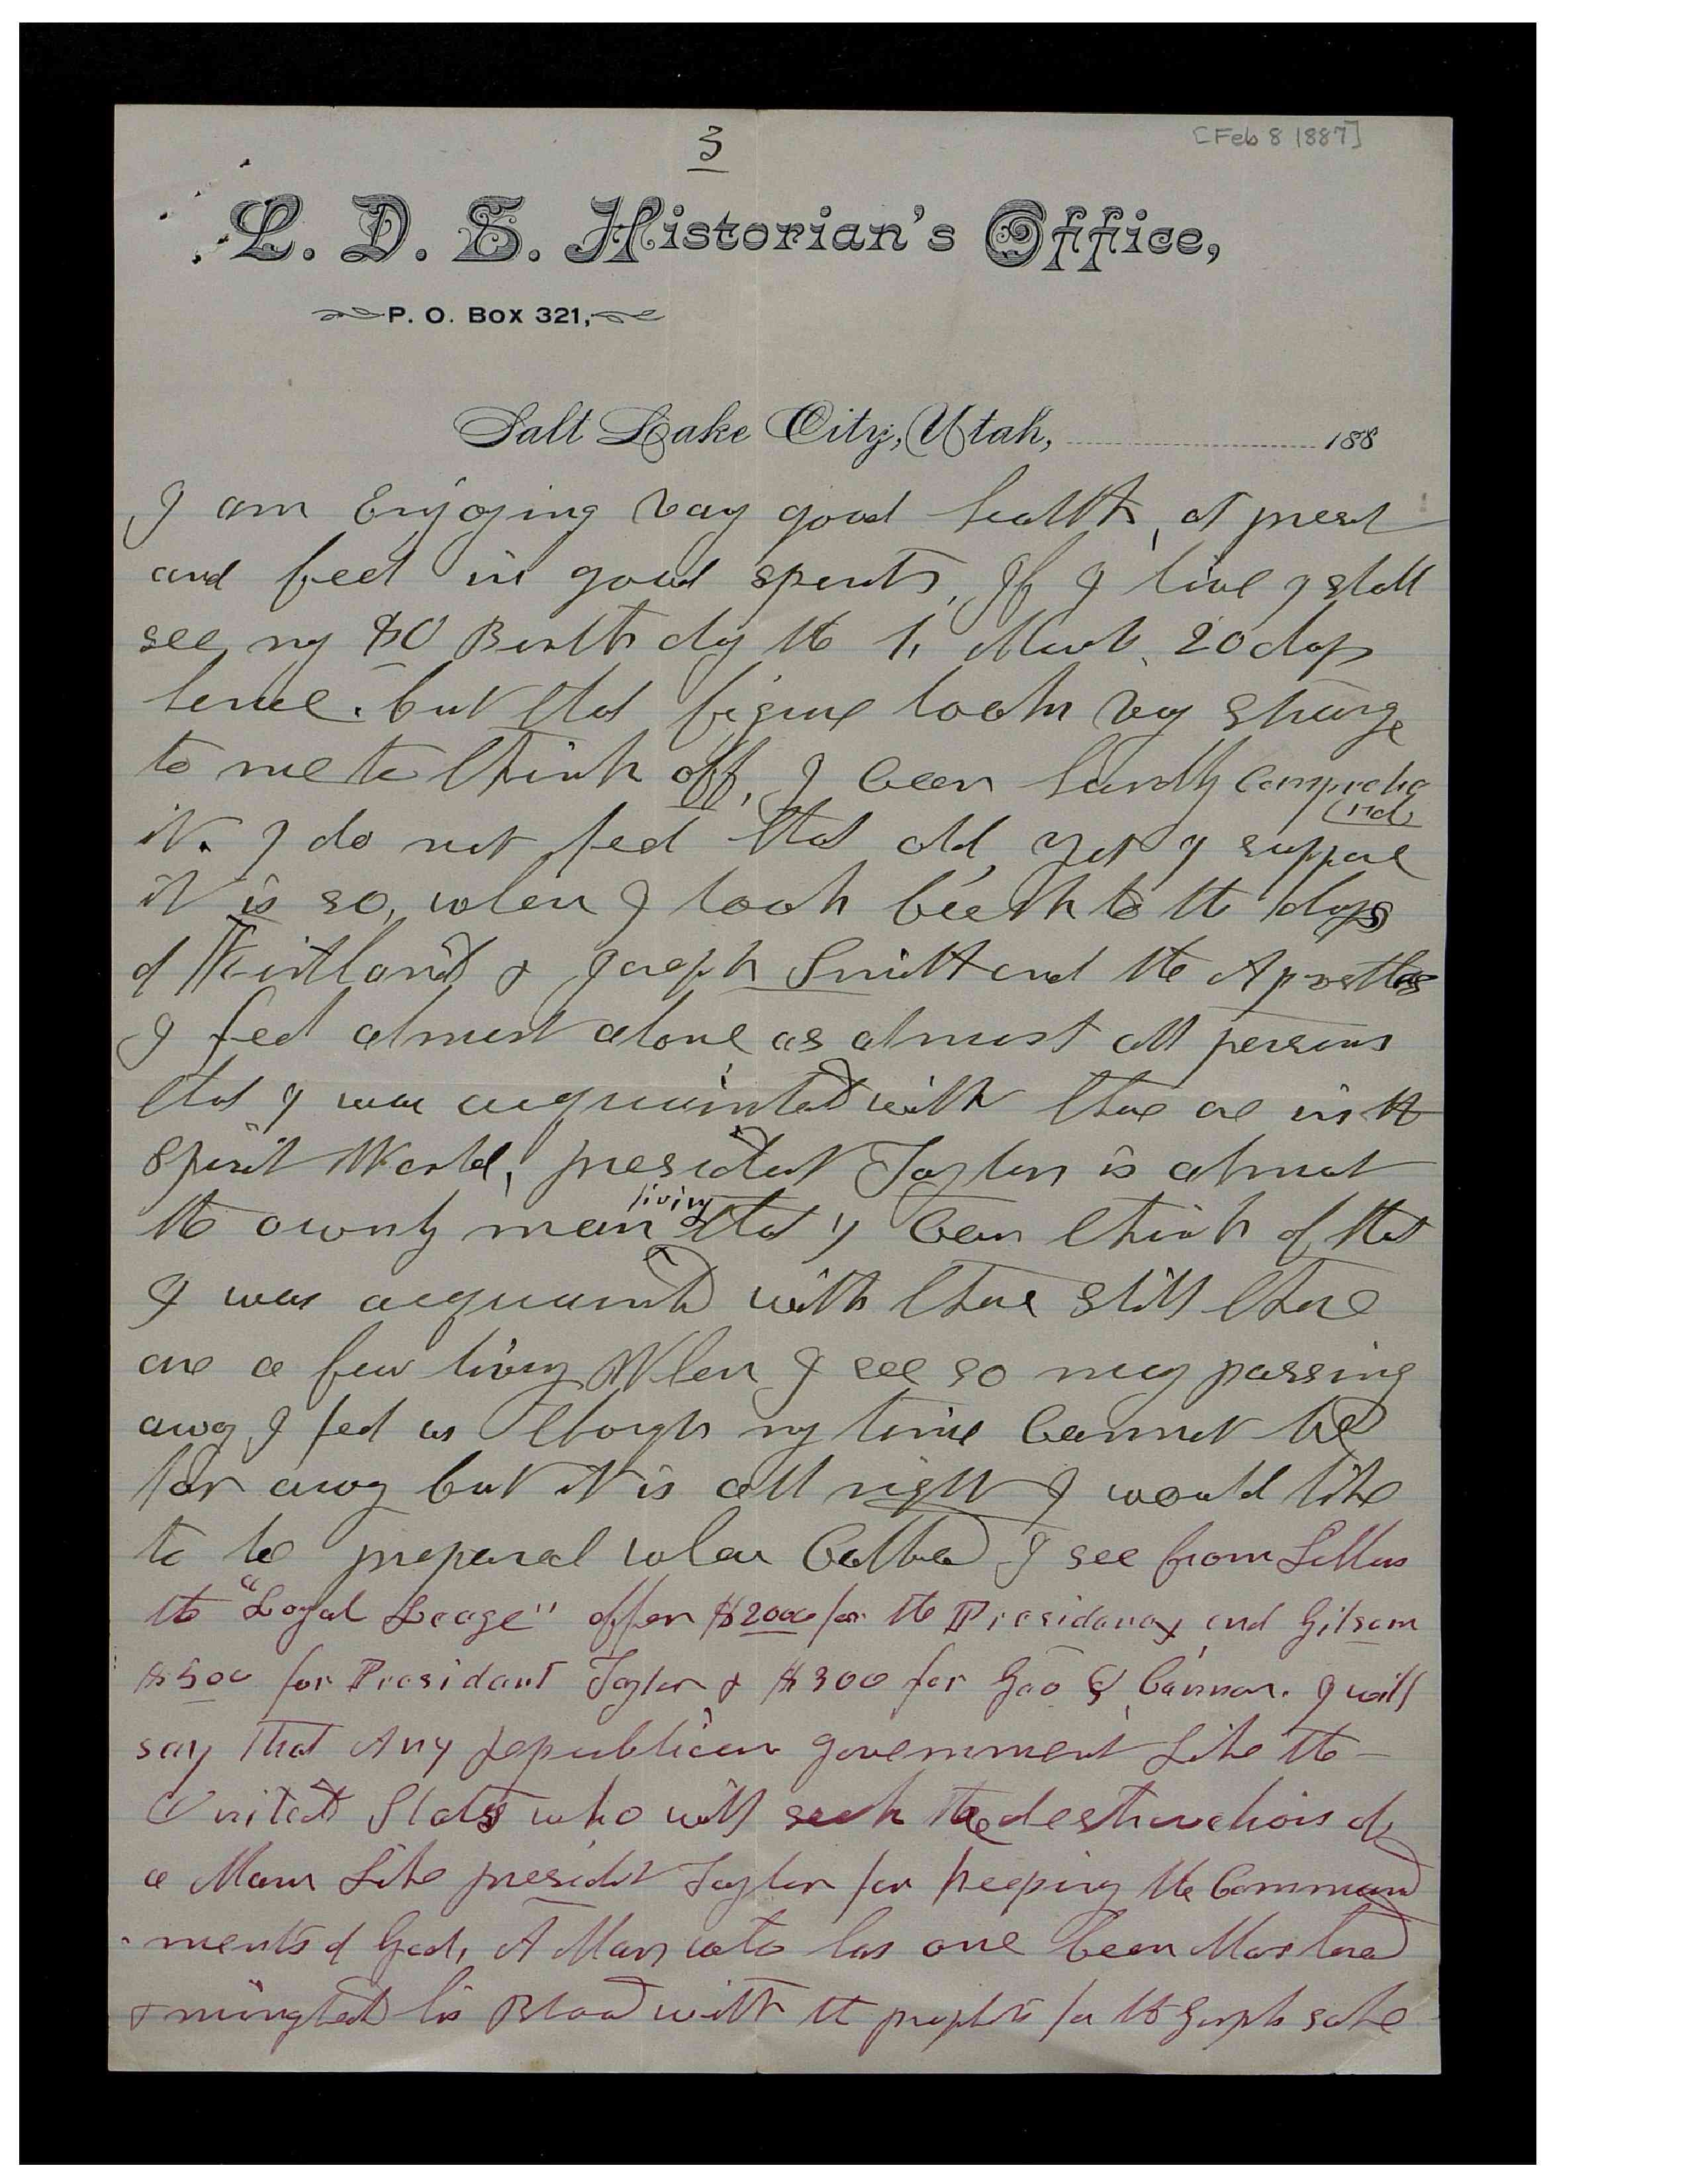 3
[Feb 8 1887]
L. D. S. Historian's Office,
P. O. Box 321,
Salt Lake City, Utah, 188
I am Enjoying vary good health, at preset
and feel in good spirits, If I live I shall
see my 80 Birth day the 1, March 20 days
hence. but that figure looks vary strange
to me to think off, I can hardly comprehe
end
it. I do not feel that old, yet I suppose
it is so, when I look back to the days
of Kirtland & Joseph Smith and the Apostles
I feel almost alone as almost all persons
that I was acquainted with thare are in the
spirit World, president Taylor is almost
living
the ownly man that I can think of that
I was acquainted with thare still thare
are a few living When I see so many passing
away I feel as though my time cannot be
far away but it is all right I would like
to be prepared when Called I see from Letters
the "Loyal Leage" offer $2000 for the Presidency, and Gilson
$500 for President Taylor & $300 for Geo Q Cannon. I will
say that Any republican government Like the
United States who will seek the destruction of
a Man Like president Taylor for keeping the Command
ments of God, A Man who has one been Martered
& mingled his Blood with the prophets for the Gospels sake